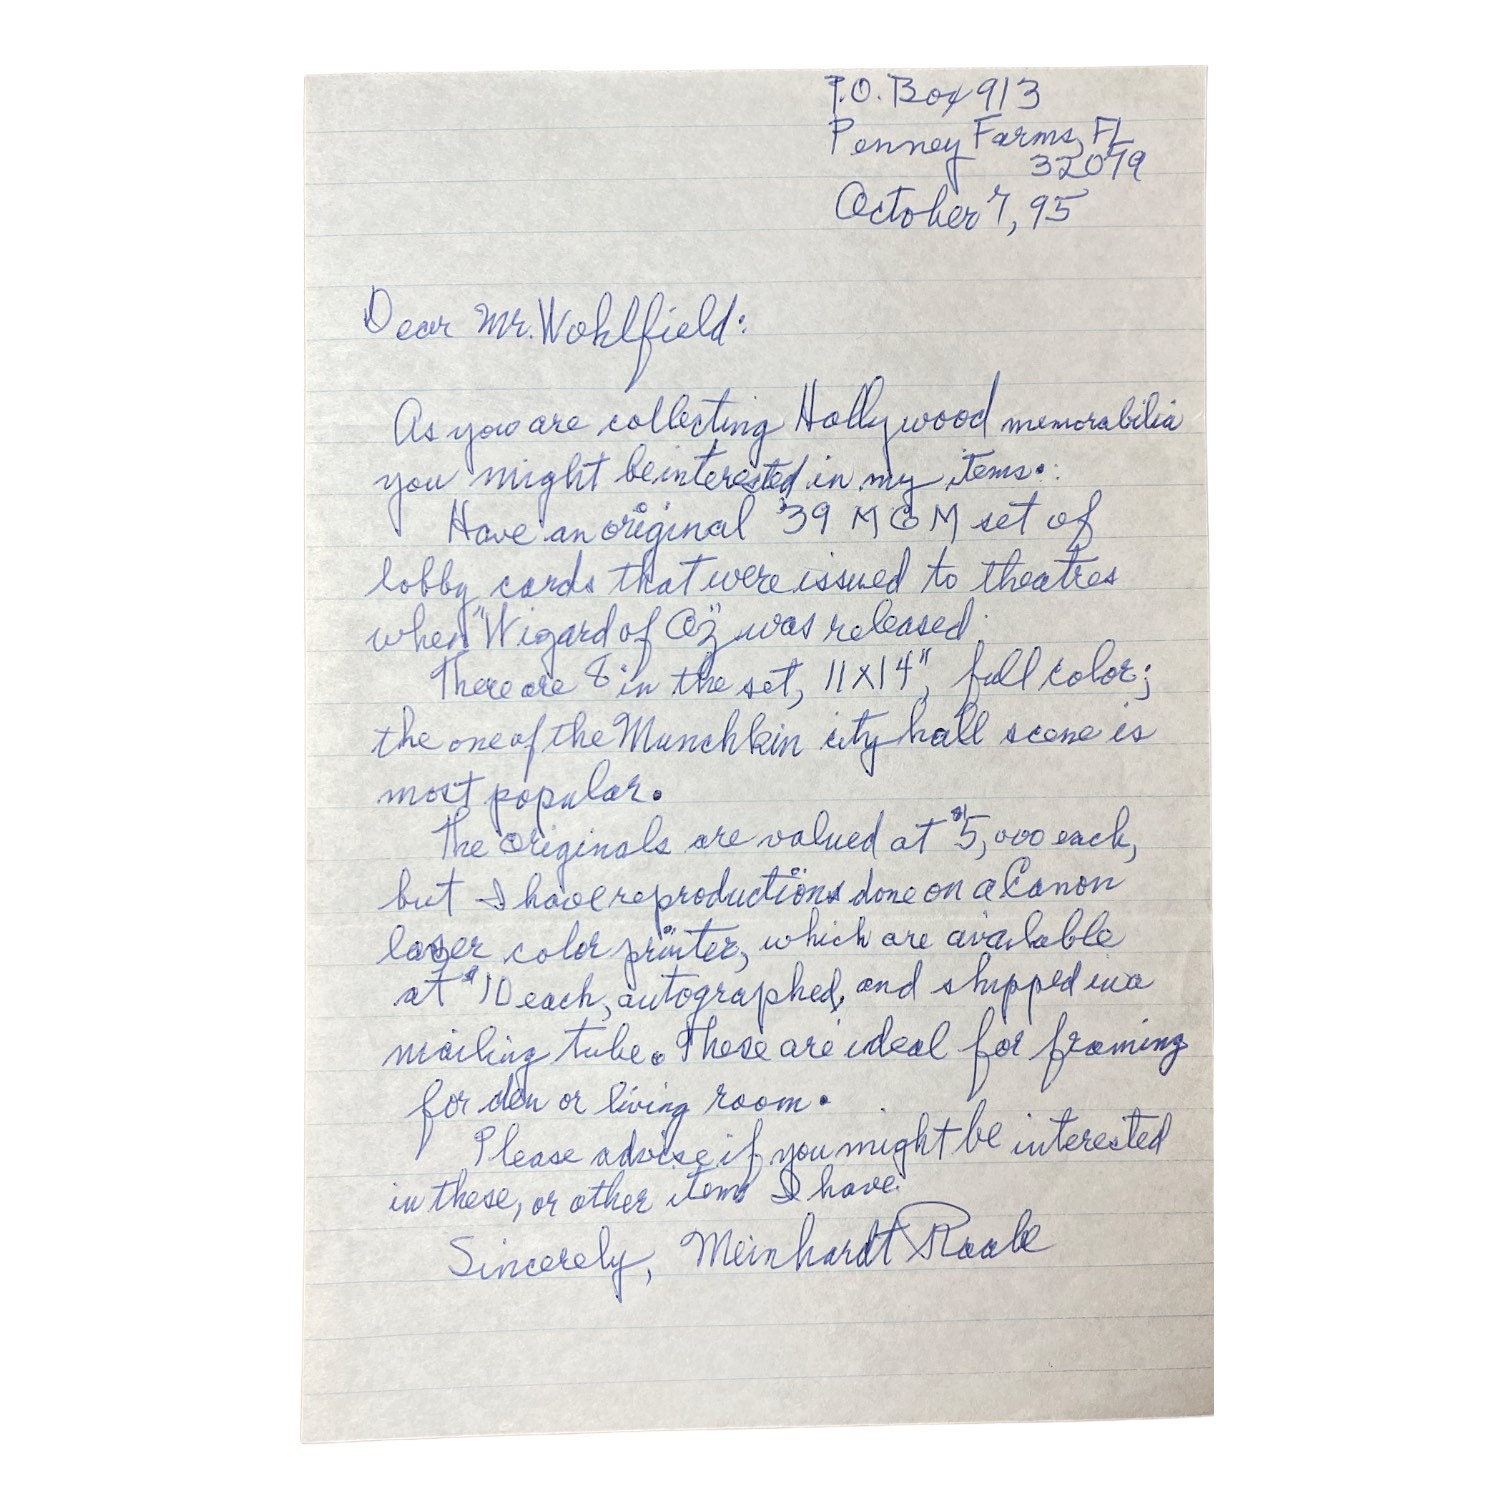 P.O. Box 913
Penney Farms, FL
32079
October 7, 95
Dear Mr. Wohlfield:
As you are collecting Hollywood memorabilia
you might be interested in my items.
Have an original '39 MGM set of
lobby cards that were issued to theatres
when "Wizard of Oz" was released.
There are 8 in the set, 11x14", full color;
the one of the Munchkin city hall scene is
most popular.
The originals are valued at $5,000 each,
but I have reproductions done on a Canon
laser color printer, which are available
at $10 each, autographed, and shipped in a
mailing tube. These are ideal for framing
for den or living room.
Please advise if you might be interested
in these, or other items I have.
Sincerely, Meinhardt Raabe